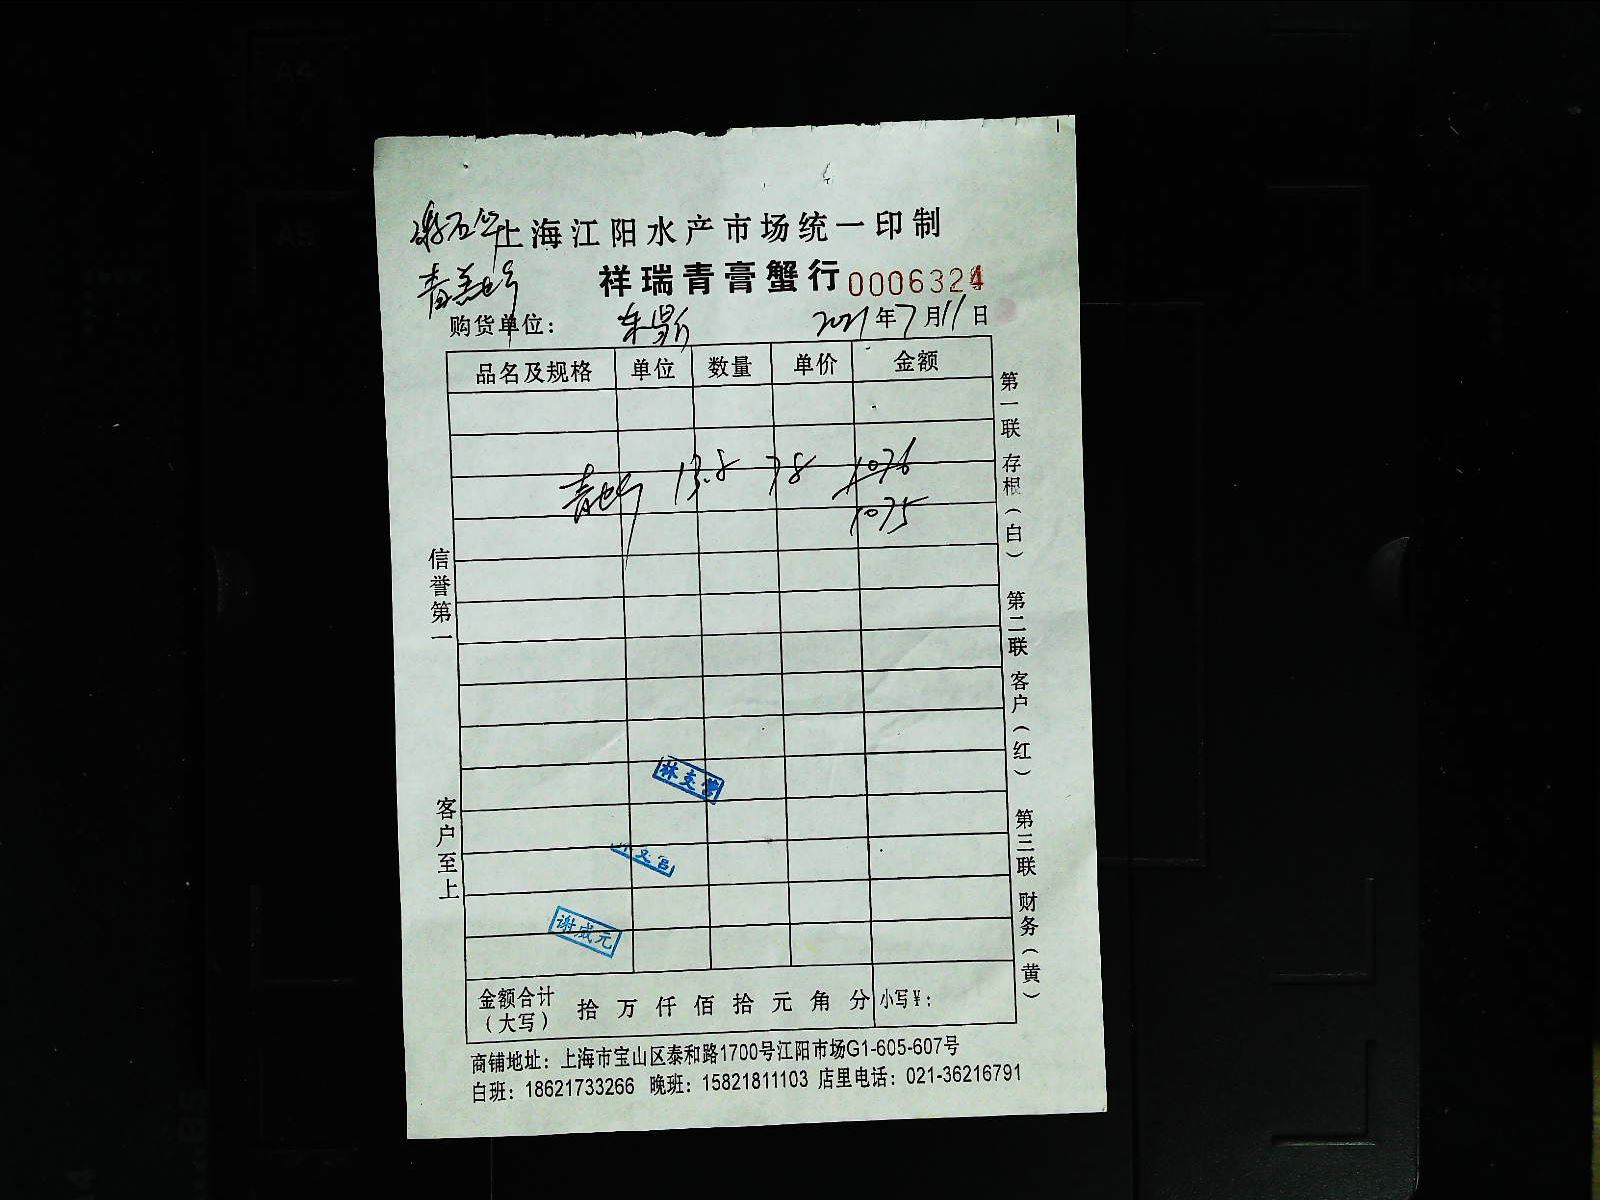 上海江阳水产市场统一印制
祥瑞青膏蟹行 0006324
购货单位： 东昇 2021年7月11日
品名及规格 单位 数量 单价 金额
青 13.8 78 1076
1075
信誉第一
客户至上
第一联 存根（白） 第二联 客户（红） 第三联 财务（黄）
谢成元
金额合计（大写） 拾 万 仟 佰 拾 元 角 分 小写¥：
商铺地址：上海市宝山区泰和路1700号江阳市场G1-605-607号
白班：18621733266 晚班：15821811103 店里电话：021-36216791